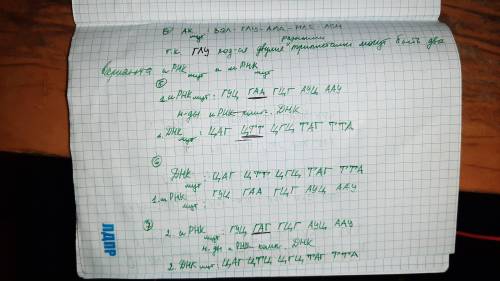 б) АК мут : ВАЛ - ГЛУ - АЛА - ИЛЕ - АСН
т.к. ГЛУ код-ся двумя разными триплетами могут быть два
варианта иРНК мут и иРНК мут
⑤
1. иРНК мут : ГУЦ ГАА ГЦГ АУЦ ААУ
н-ды иРНК комп. ДНК
2. ДНК мут : ЦАГ ЦТТ ЦГЦ ТАГ ТТА
⑥
ДНК мут : ЦАГ ЦТТ ЦГЦ ТАГ ТТА
1. иРНК мут : ГУЦ ГАА ГЦГ АУЦ ААУ
⑦
2. иРНК мут : ГУЦ ГАГ ГЦГ АУЦ ААУ
н-ды иРНК комп. ДНК
2. ДНК мут : ЦАГ ЦТЦ ЦГЦ ТАГ ТТА
ЛДПР